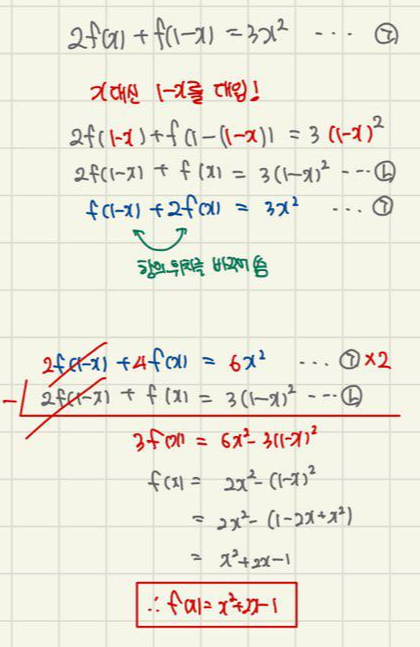 2f(x) + f(1-x) = 3x² ··· ㉠
x 대신 1-x를 대입!
2f(1-x) + f(1-(1-x)) = 3(1-x)²
2f(1-x) + f(x) = 3(1-x)² ··· ㉡
f(1-x) + 2f(x) = 3x² ··· ㉠
항의 위치를 바꿔 씀
2f(1-x) + 4f(x) = 6x² ··· ㉠×2
- 2f(1-x) + f(x) = 3(1-x)² ··· ㉡
3f(x) = 6x² - 3(1-x)²
f(x) = 2x² - (1-x)²
= 2x² - (1-2x+x²)
= x²+2x-1
∴ f(x) = x²+2x-1